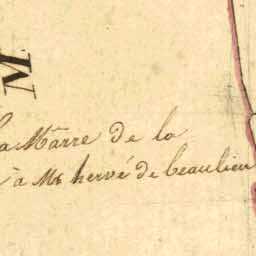 M
la Mârre de la
à Mr hervé de beaulieu